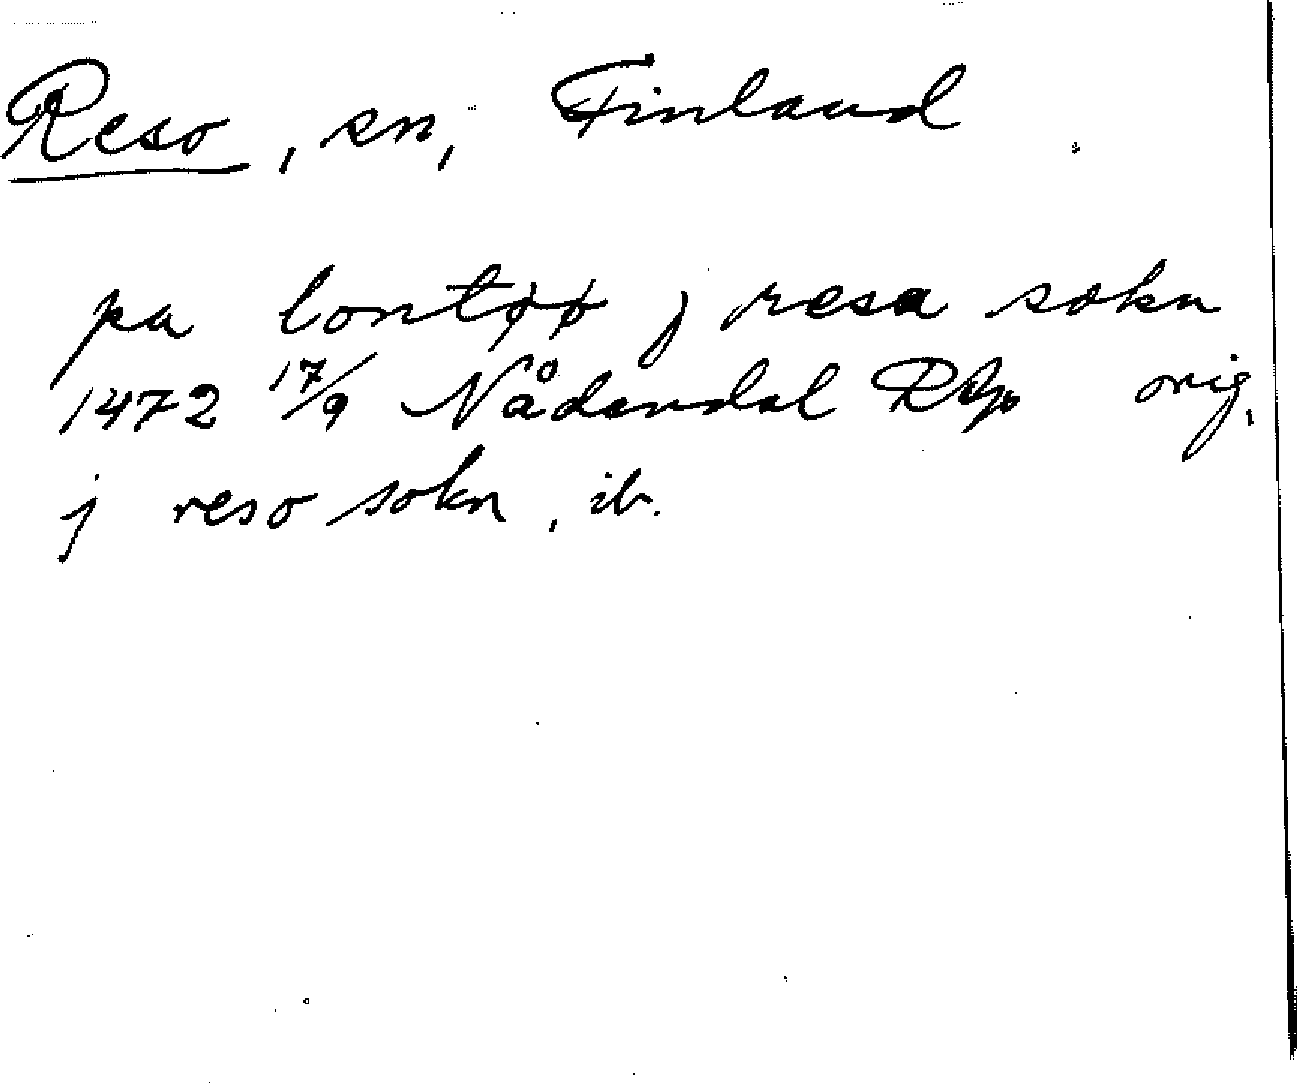 Reso, sn, Finland
pa lontøø j resa sokn
1472 17/9 Nådendal RAp orig.
j reso sokn, ib.